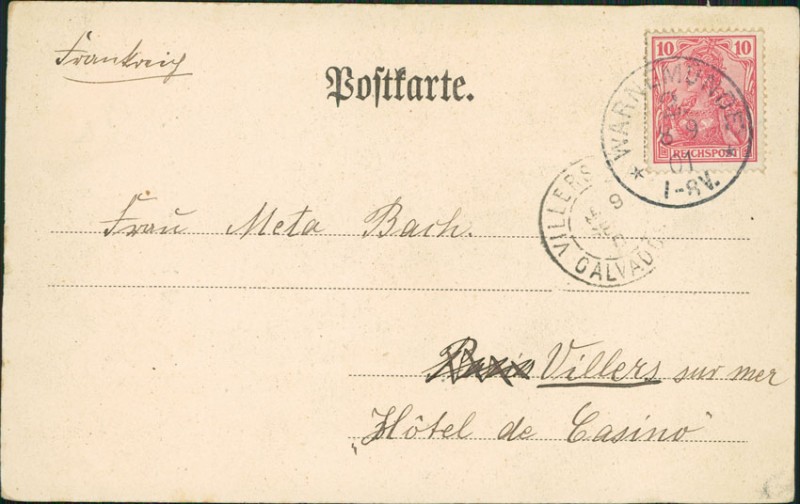 Frankreich
Postkarte.
10 10
REICHSPOST
WARNEMÜNDE
8 9
01
1-8V.
VILLERS
CALVADOS
Frau Meta Bach.
Paris Villers sur mer
„Hôtel de Casino"